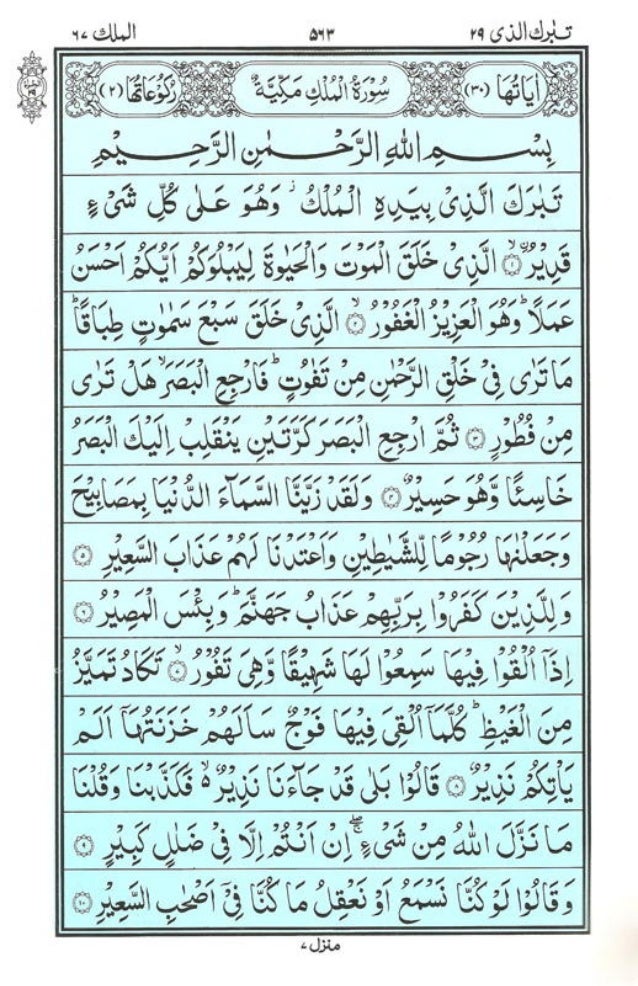 تبٰرك الذی ۲۹ ۵۶۳ الملك ۶۷
اٰیَاتُهَا (۳۰) سُوْرَةُ الْمُلْكِ مَكِّیَّةٌ رُكُوْعَاتُهَا (۲)
بِسْمِ اللهِ الرَّحْمٰنِ الرَّحِیْمِ
تَبٰرَكَ الَّذِیْ بِیَدِهِ الْمُلْكُ ؗ وَهُوَ عَلٰی كُلِّ شَیْءٍ
قَدِیْرُ ۙ﴿۱﴾ الَّذِیْ خَلَقَ الْمَوْتَ وَالْحَیٰوةَ لِیَبْلُوَكُمْ اَیُّكُمْ اَحْسَنُ
عَمَلًا ؕ وَهُوَ الْعَزِیْزُ الْغَفُوْرُ ۙ﴿۲﴾ الَّذِیْ خَلَقَ سَبْعَ سَمٰوٰتٍ طِبَاقًا ؕ
مَا تَرٰی فِیْ خَلْقِ الرَّحْمٰنِ مِنْ تَفٰوُتٍ ؕ فَارْجِعِ الْبَصَرَ ۙ هَلْ تَرٰی
مِنْ فُطُوْرٍ ﴿۳﴾ ثُمَّ ارْجِعِ الْبَصَرَ كَرَّتَیْنِ یَنْقَلِبْ اِلَیْكَ الْبَصَرُ
خَاسِئًا وَّهُوَ حَسِیْرٌ ﴿۴﴾ وَلَقَدْ زَیَّنَّا السَّمَآءَ الدُّنْیَا بِمَصَابِیْحَ
وَجَعَلْنٰهَا رُجُوْمًا لِّلشَّیٰطِیْنِ وَاَعْتَدْنَا لَهُمْ عَذَابَ السَّعِیْرِ ﴿۵﴾
وَلِلَّذِیْنَ كَفَرُوْا بِرَبِّهِمْ عَذَابُ جَهَنَّمَ ؕ وَبِئْسَ الْمَصِیْرُ ﴿۶﴾
اِذَاۤ اُلْقُوْا فِیْهَا سَمِعُوْا لَهَا شَهِیْقًا وَّهِیَ تَفُوْرُ ۙ﴿۷﴾ تَكَادُ تَمَیَّزُ
مِنَ الْغَیْظِ ؕ كُلَّمَاۤ اُلْقِیَ فِیْهَا فَوْجٌ سَاَلَهُمْ خَزَنَتُهَاۤ اَلَمْ
یَاْتِكُمْ نَذِیْرٌ ﴿۸﴾ قَالُوْا بَلٰی قَدْ جَآءَنَا نَذِیْرٌ ۙ۬ فَكَذَّبْنَا وَقُلْنَا
مَا نَزَّلَ اللهُ مِنْ شَیْءٍ ۖۚ اِنْ اَنْتُمْ اِلَّا فِیْ ضَلٰلٍ كَبِیْرٍ ﴿۹﴾
وَقَالُوْا لَوْ كُنَّا نَسْمَعُ اَوْ نَعْقِلُ مَا كُنَّا فِیْۤ اَصْحٰبِ السَّعِیْرِ ﴿۱۰﴾
منزل ۷